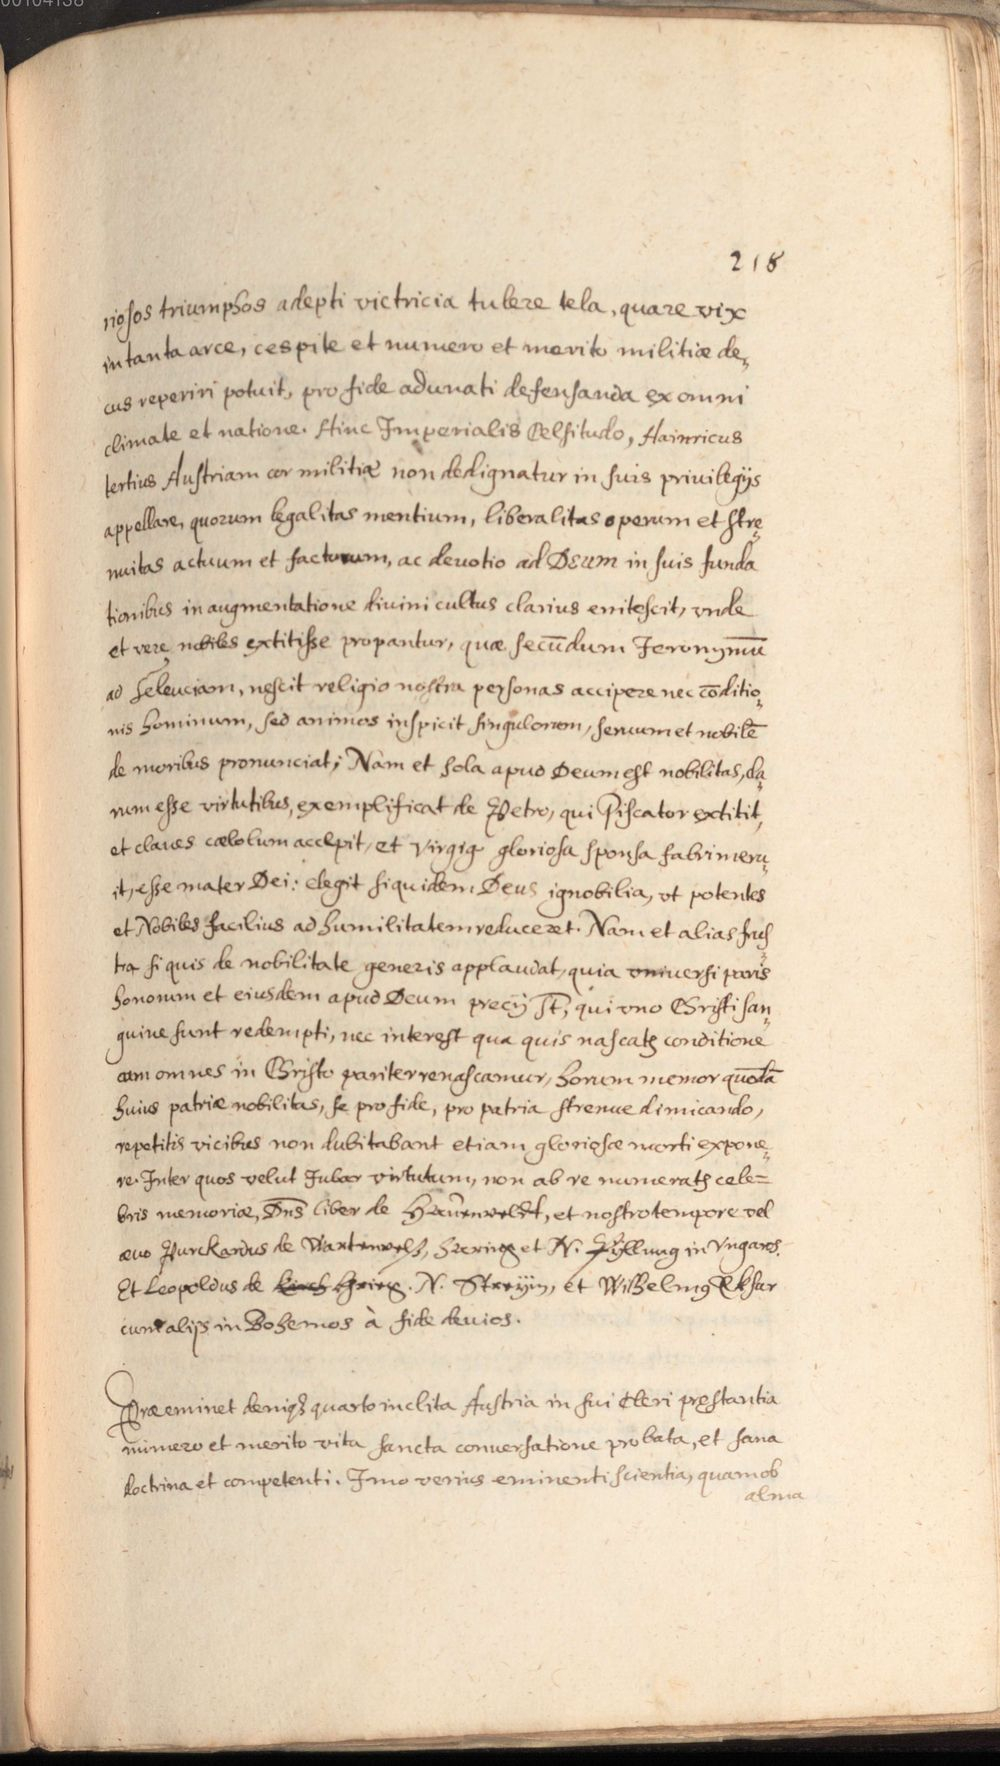 00104138
218
riosos triumphos adepti victricia tulere tela, quare vix
in tanta arce, cespite et numero et merito militiæ de,
cus reperiri potuit, pro fide adunati defensanda ex omni
climate et natione. Hinc Imperialis Celsitudo, Hainricus
tertius Austriam cor militiæ non dedignatur in suis privilegijs
appellare, quorum legalitas mentium, liberalitas operum et stre,
nuitas actuum et factorum, ac deuotio ad Deum in suis funda
tionibus in augmentatione divini cultus clarius enitescit, vnde
et vere nobiles extitisse propantur, quæ secūdum Ieronymū
ad Seleuciam, nescit religio nostra personas accipere nec cōditio,
nis hominum, sed animos inspicit singulorum, seruum et nobilē
de moribus pronunciat; Nam et sola apud Deum est nobilitas, cla,
rum esse virtutibus, exemplificat de Petro, qui Piscator extitit,
et claues cælolum accepit, et virgig gloriosa sponsa fabri meru,
it, esse mater Dei: elegit siquidem Deus ignobilia, vt potentes
et Nobiles facilius ad humilitatem reduceret. Nam et alias frus,
tra si quis de nobilitate generis applaudat, quia vniuersi paris
honorum et eiusdem apud Deum precij st̄, qui vno Christi san,
guine sunt redempti, nec interest qua quis nascatz conditione
cum omnes in Christo pariter renascamur, horum memor quodā
huius patriæ nobilitas, se pro fide, pro patria strenue dimicando,
repetitis vicibus non dubitabant etiam gloriosæ morti expone,
re. Inter quos velut Iubar virtutum, non ab re numeratz cele=
bris memoriæ, Dn̄s liber de et nostro tempore vel
æuo Purckardus de et N. in Vngaros.
Et Leopoldus de N. Streyin, et Wilhelmg
cum alijs in Bohemos à fide deuios.
Præeminet deniqz quarto inclita Austria in sui Cleri præstantia
numero et merito vita sancta conuersatione probata, et sana
doctrina et competenti. Imo verius eminenti scientia, quam ob
alma